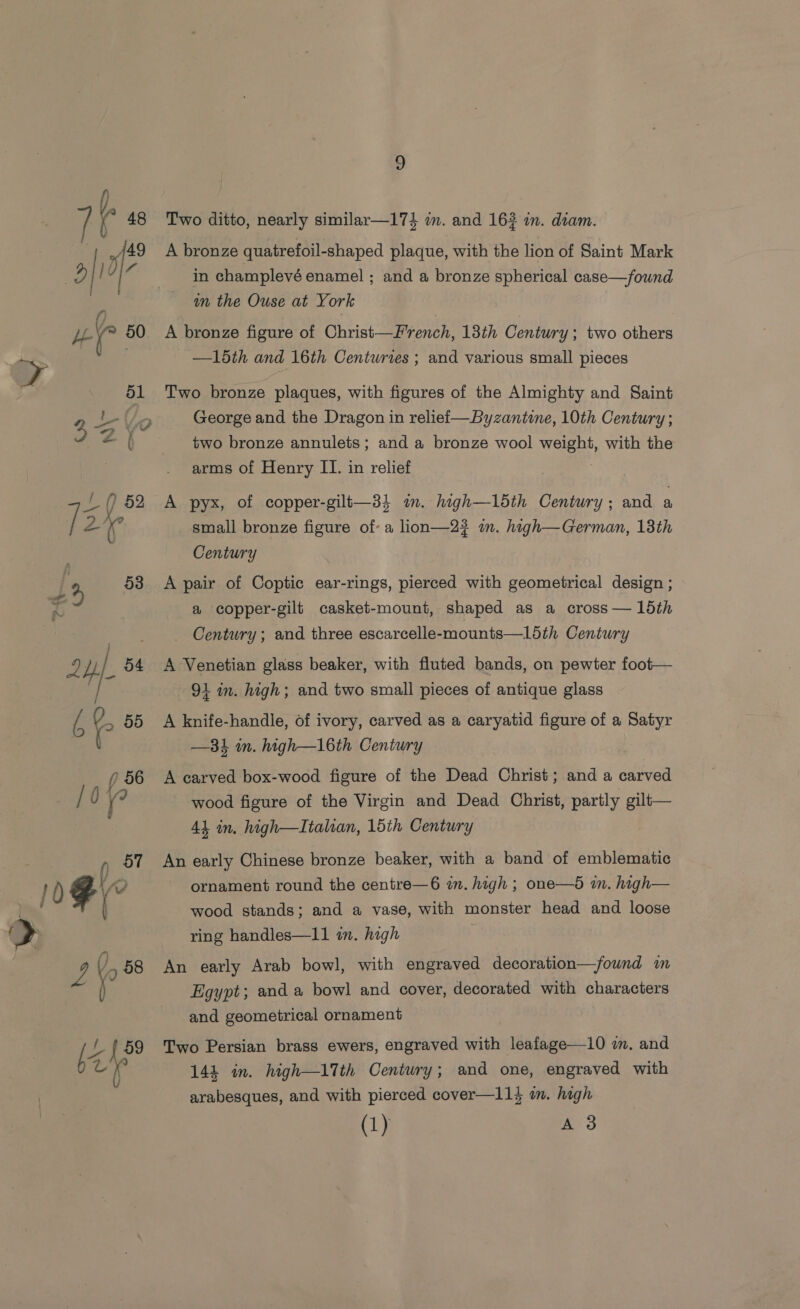 9
48 Two ditto, nearly similar—17½ in. and 16¾ in. diam.
49 A bronze quatrefoil-shaped plaque, with the lion of Saint Mark
in champlevé enamel ; and a bronze spherical case—found
in the Ouse at York
50 A bronze figure of Christ—French, 13th Century ; two others
—15th and 16th Centuries ; and various small pieces
51 Two bronze plaques, with figures of the Almighty and Saint
George and the Dragon in relief—Byzantine, 10th Century ;
two bronze annulets ; and a bronze wool weight, with the
arms of Henry II. in relief
52 A pyx, of copper-gilt—3½ in. high—15th Century ; and a
small bronze figure of a lion—2¾ in. high—German, 13th
Century
53 A pair of Coptic ear-rings, pierced with geometrical design ;
a copper-gilt casket-mount, shaped as a cross — 15th
Century ; and three escarcelle-mounts—15th Century
54 A Venetian glass beaker, with fluted bands, on pewter foot—
9½ in. high ; and two small pieces of antique glass
55 A knife-handle, of ivory, carved as a caryatid figure of a Satyr
—3½ in. high—16th Century
56 A carved box-wood figure of the Dead Christ ; and a carved
wood figure of the Virgin and Dead Christ, partly gilt—
4½ in. high—Italian, 15th Century
57 An early Chinese bronze beaker, with a band of emblematic
ornament round the centre—6 in. high ; one—5 in. high—
wood stands ; and a vase, with monster head and loose
ring handles—11 in. high
58 An early Arab bowl, with engraved decoration—found in
Egypt ; and a bowl and cover, decorated with characters
and geometrical ornament
59 Two Persian brass ewers, engraved with leafage—10 in. and
14½ in. high—17th Century ; and one, engraved with
arabesques, and with pierced cover—11½ in. high
(1) A 3